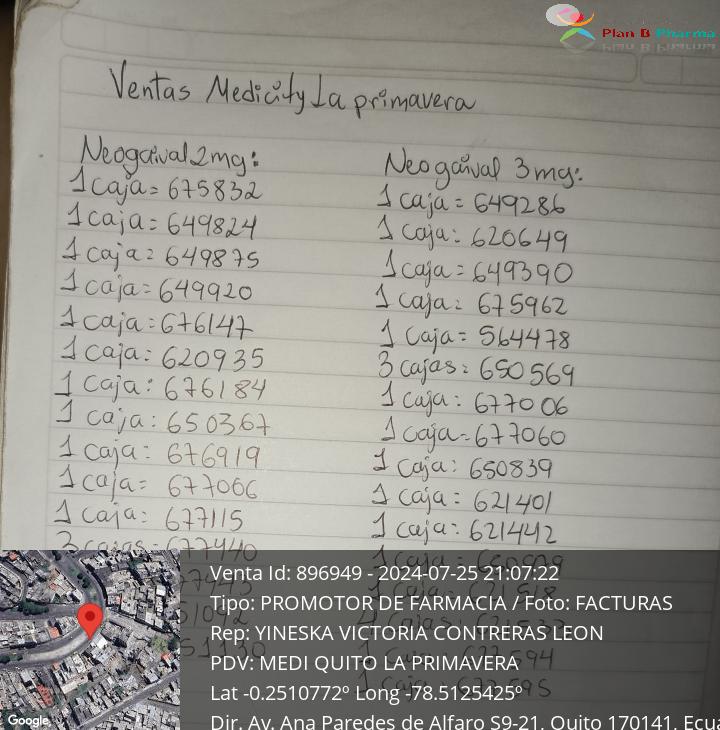 Plan B Pharma
Ventas Medicity La primavera
Neogaival 2mg:
1 caja = 675832
1 caja = 649824
1 caja = 649875
1 caja = 649920
1 caja = 676147
1 caja: 620935
1 caja: 676184
1 caja: 650367
1 caja: 676919
1 caja= 677066
1 caja: 677115
3 cajas = 677440
Neogaival 3mg:
1 caja = 649286
1 caja: 620649
1 caja = 649390
1 caja: 675962
1 caja= 564478
3 cajas: 650569
1 caja: 677006
1 caja=677060
1 caja: 650839
1 caja = 621401
1 caja: 621442
1 caja
Venta Id: 896949 - 2024-07-25 21:07:22
Tipo: PROMOTOR DE FARMACIA / Foto: FACTURAS
Rep: YINESKA VICTORIA CONTRERAS LEON
PDV: MEDI QUITO LA PRIMAVERA
Lat -0.2510772º Long -78.5125425º
Dir. Av. Ana Paredes de Alfaro S9-21, Quito 170141, Ecua
Google